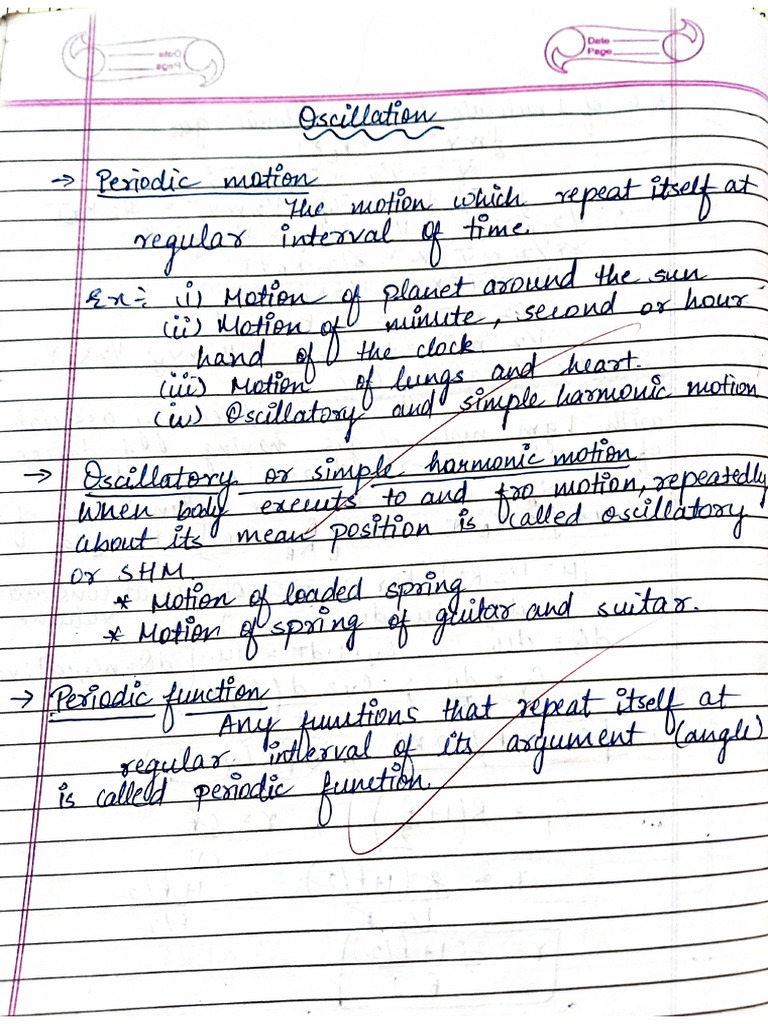 Date
Page
Oscillation
→ Periodic motion
The motion which repeat itself at
regular interval of time.
Ex:- (i) Motion of planet around the sun
(ii) Motion of minute, second or hour
hand of the clock.
(iii) Motion of lungs and heart.
(iv) Oscillatory and simple harmonic motion
→ Oscillatory or simple harmonic motion
When body executs to and fro motion, repeatedly
about its mean position is called oscillatory
or SHM.
* Motion of loaded spring
* Motion of spring of guitar and suitar.
→ Periodic function
Any functions that repeat itself at
regular interval of its argument (angle)
is called periodic function.